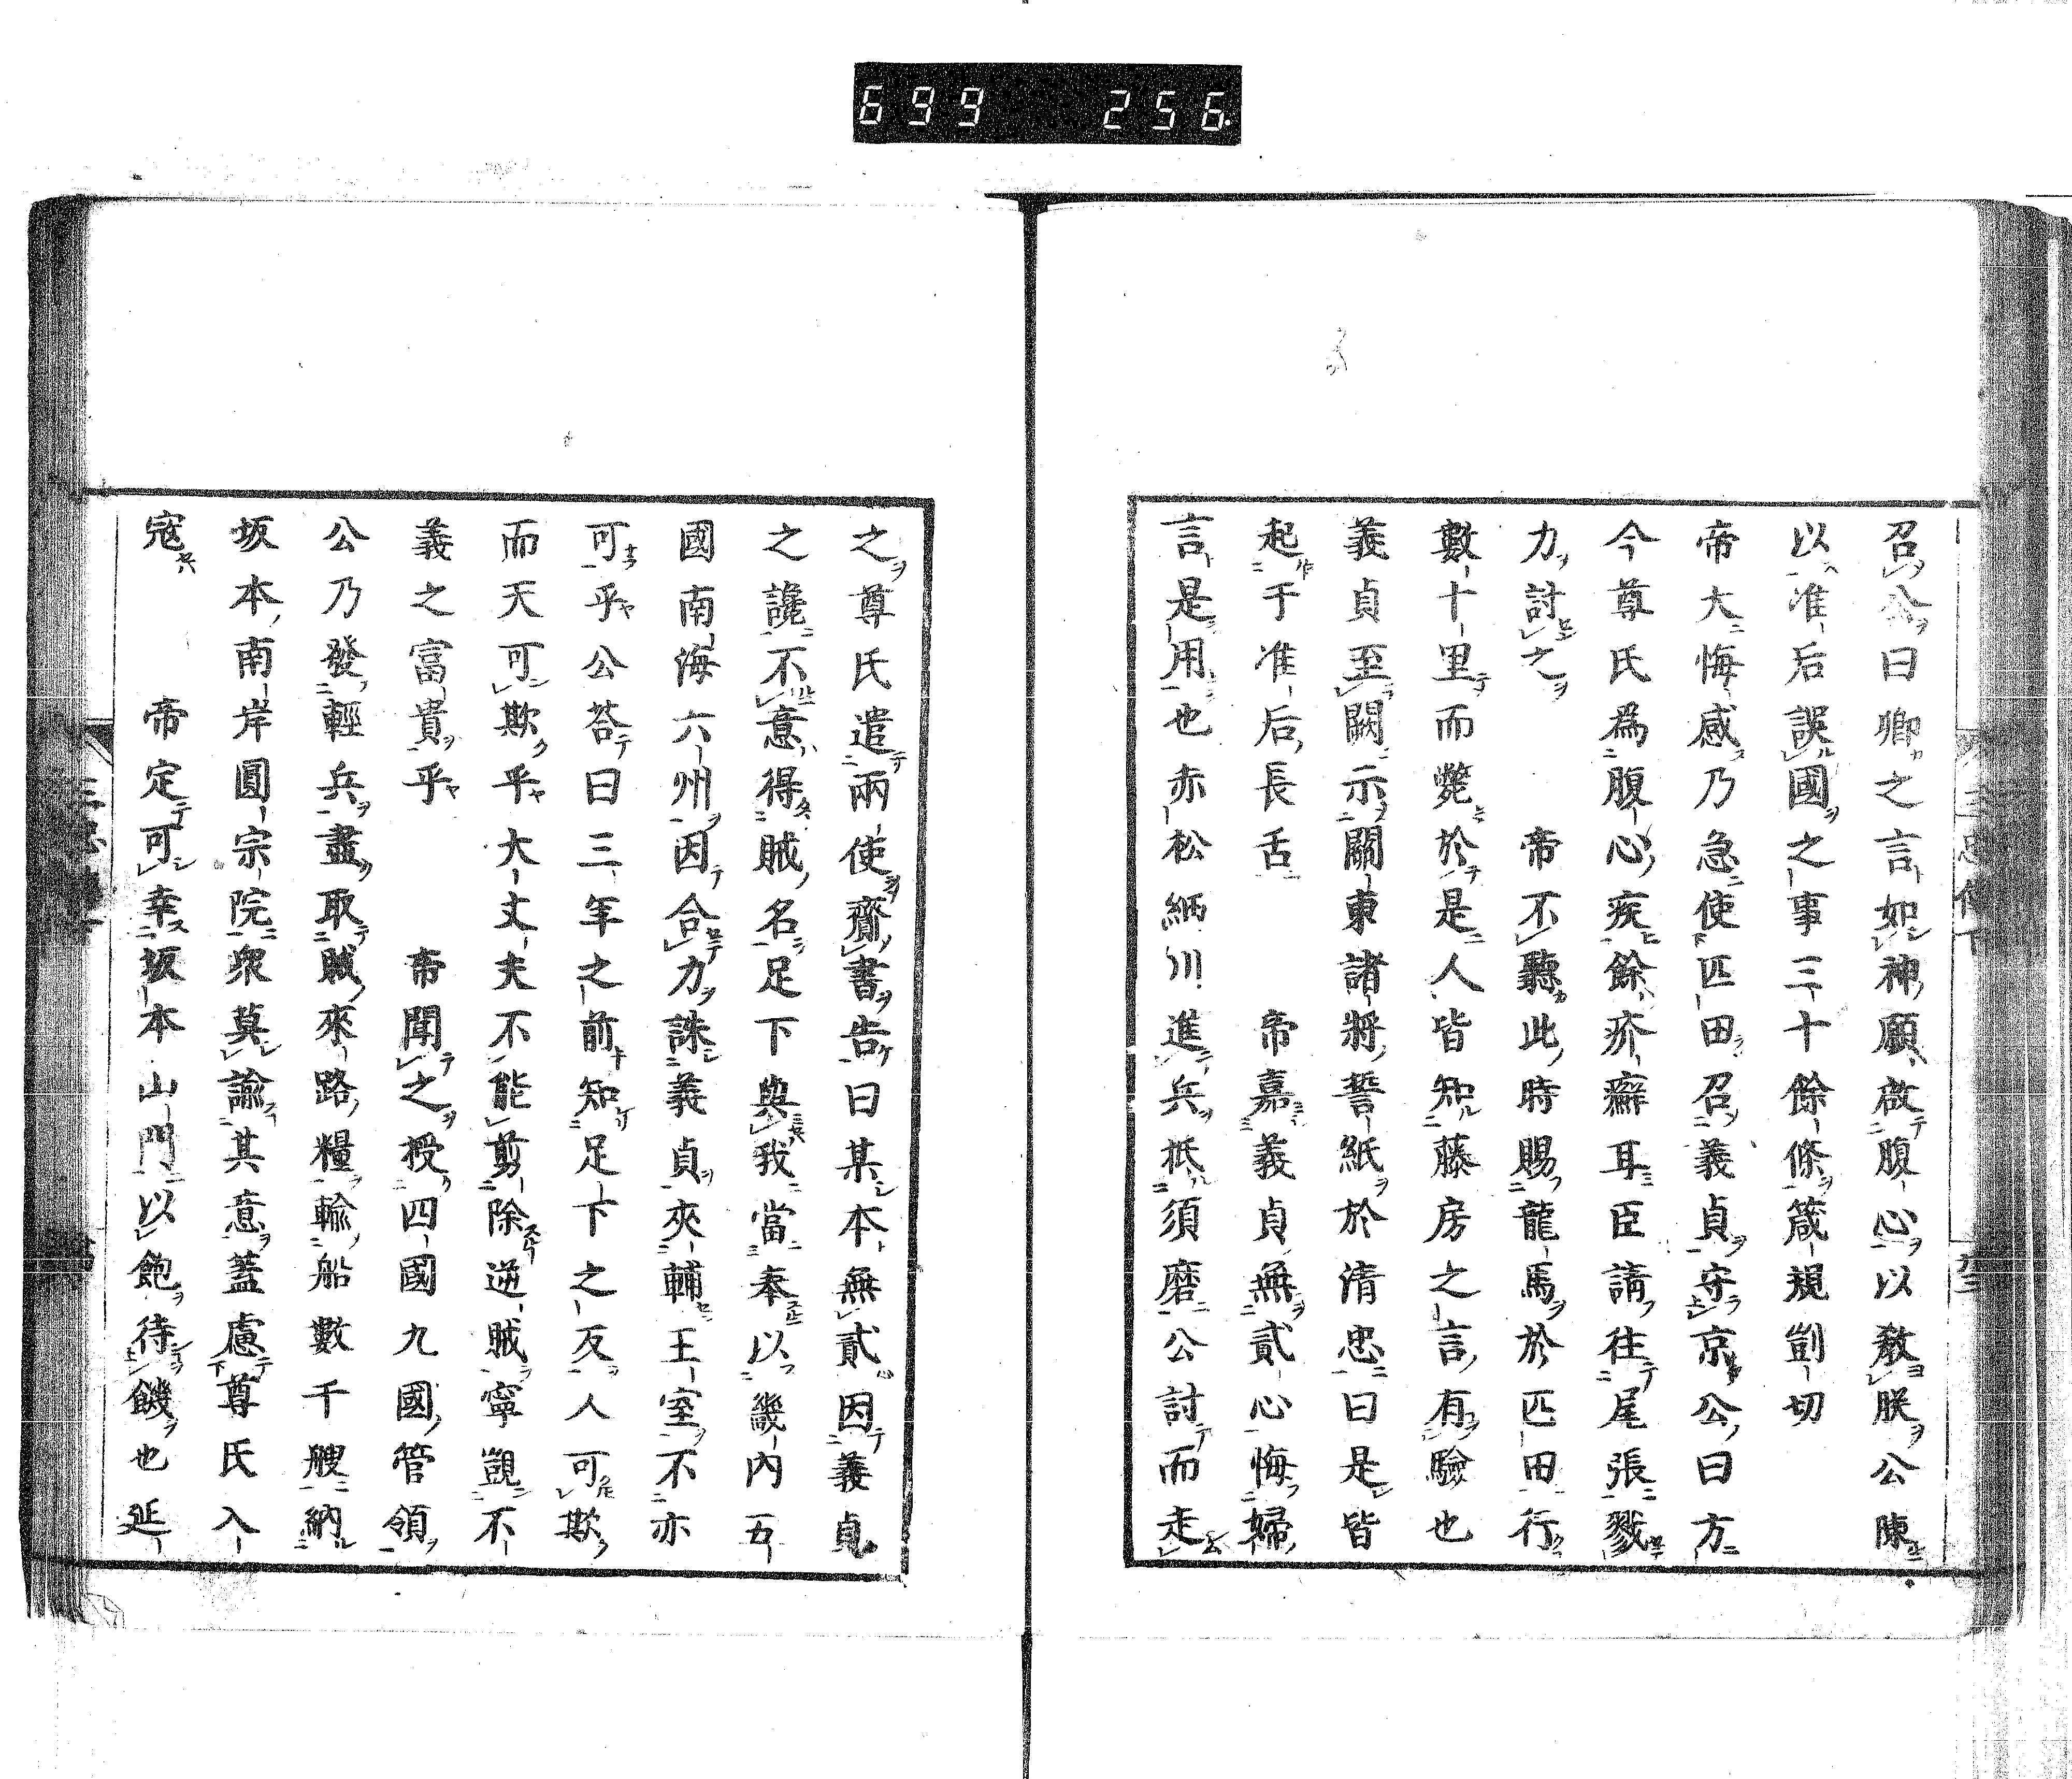 699 256
召公曰卿之言如神願啟腹心以教朕公陳
以准后誤國之事三十餘條箴規剴切
帝大悔感乃急使匹田召義貞守京公曰方
今尊氏為腹心疾餘疥癬耳臣請往尾張戮
力討之　帝不聽此時賜龍馬於匹田行
數十里而斃於是人皆知藤房之言有驗也
義貞至闕示關東諸將誓紙於清忠曰是皆
起于准后長舌　帝嘉義貞無貳心悔婦
言是用也赤松綱川進兵抵須磨公討而走
之尊氏遣兩使齎書告曰某本無貳因義貞
之讒不意得賊名足下與我當奉以畿內五
國南海六州因合力誅義貞夾輔王室不亦
可乎公荅曰三年之前知足下之反人可欺
而天可欺乎大丈夫不能剪除逆賊寧覬不
義之富貴乎　帝聞之授四國九國管領
公乃發輕兵盡取賊來路糧輸船數千艘納
坂本南岸圓宗院眾莫諭其意蓋慮尊氏入
寇　帝定可幸坂本山門以飽待饑也延